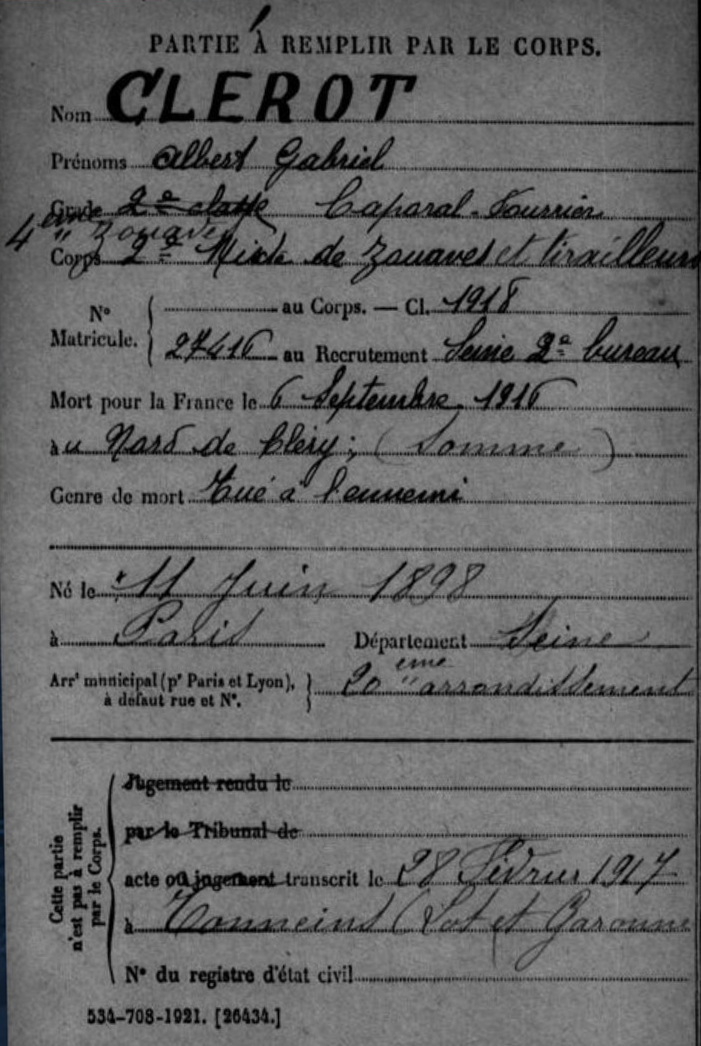 PARTIE À REMPLIR PAR LE CORPS.
Nom CLEROT
Prénoms Albert Gabriel
Grade 2e classe Caporal-Fourrier
4 ème Zouaves
Corps 2e Mixte de Zouaves et tirailleurs
No Matricule. { au Corps. — Cl. 1918
27416 au Recrutement Seine 2e bureau
Mort pour la France le 6 Septembre 1916
à u Nord de Cléry ; (Somme)
Genre de mort Tué à l'ennemi
Né le 11 Juin 1898
à Paris Département Seine
Arrt municipal (pr Paris et Lyon), à défaut rue et No. } 20 ème arrondissement
Cette partie n'est pas à remplir par le Corps.
Jugement rendu le
par le Tribunal de
acte ou jugement transcrit le 28 Février 1917
à Tonneins (Lot et Garonne
No du registre d'état civil
534-708-1921. [26434.]